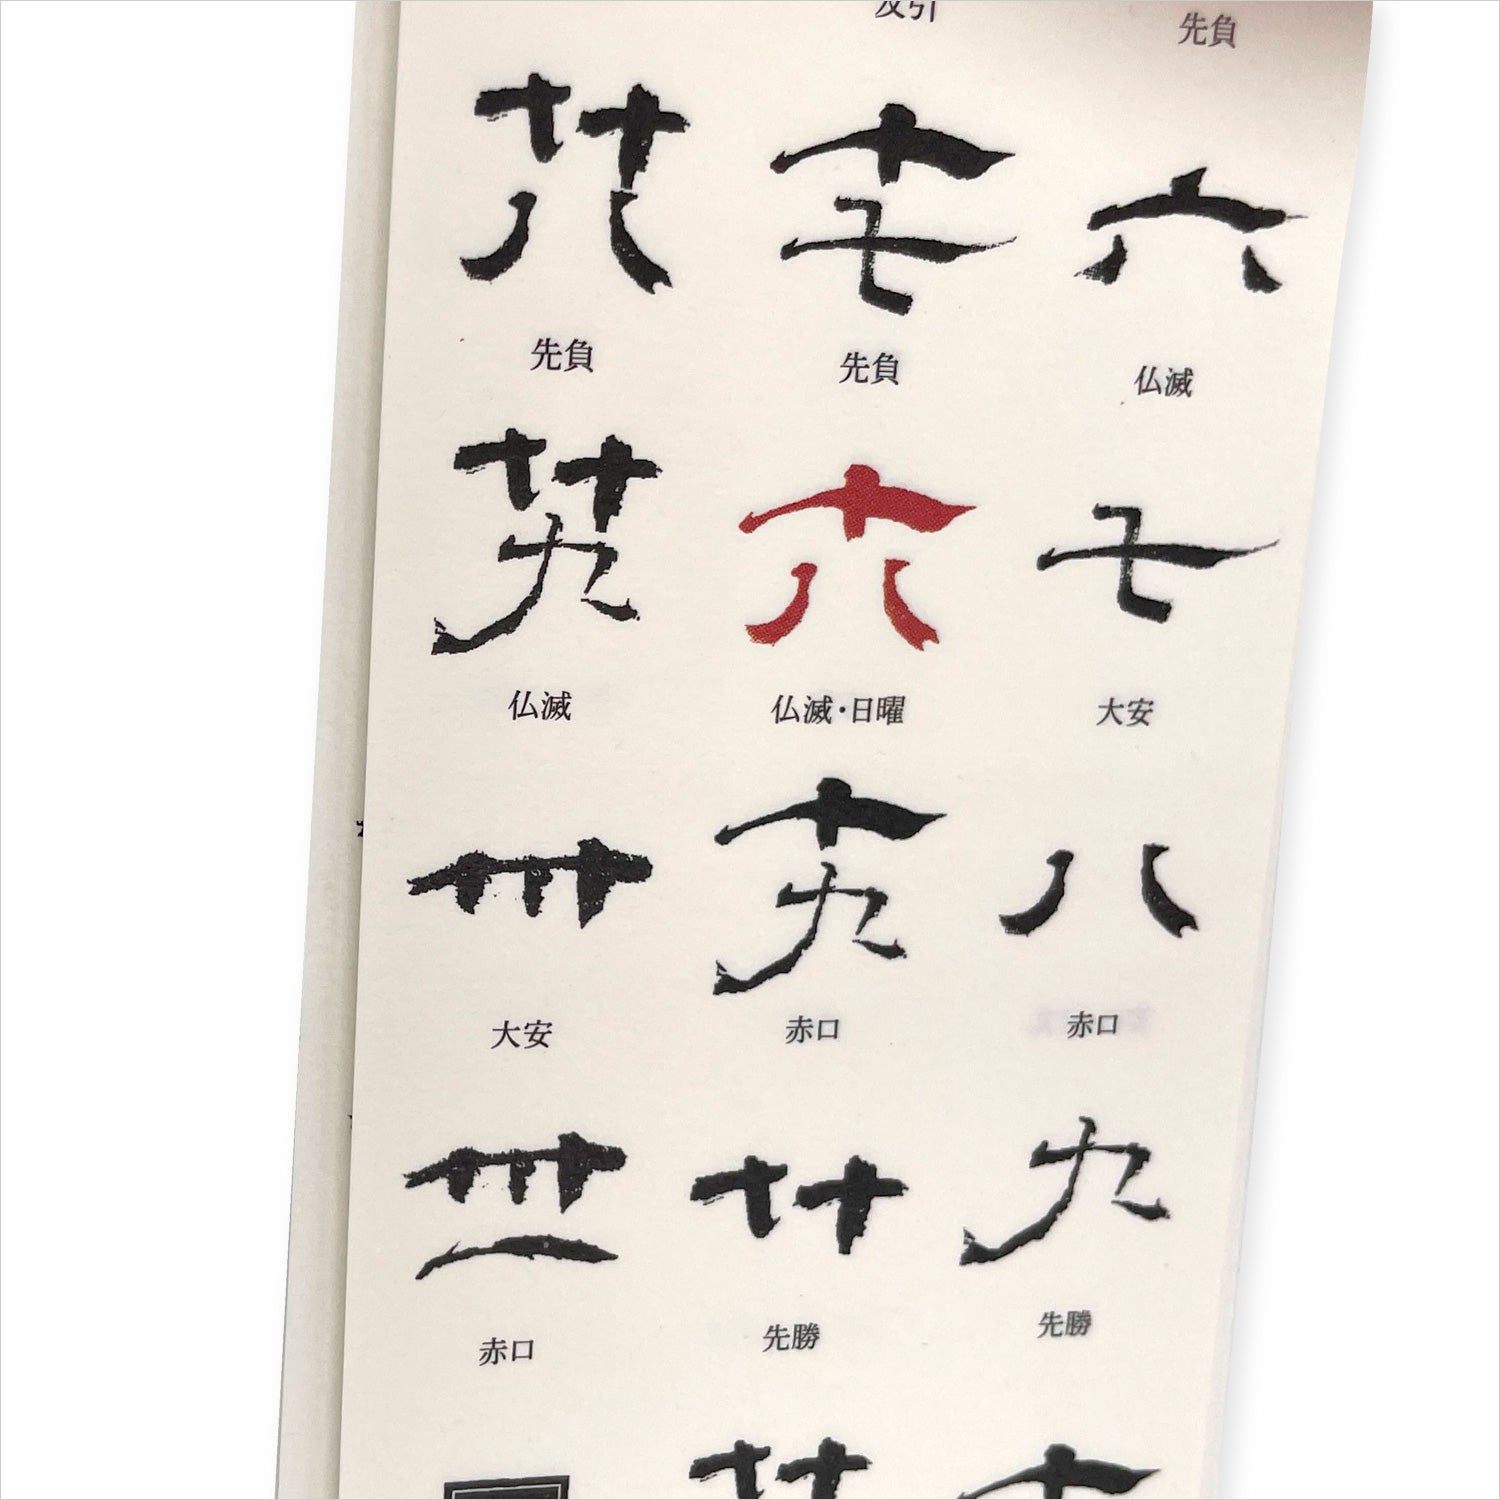 先負
六
仏滅
七
大安
八
赤口
九
先勝
十
友引
十七
先負
十八
仏滅・日曜
十九
赤口
廿
先勝
廿
廿八
先負
廿九
仏滅
卅
大安
卅一
赤口